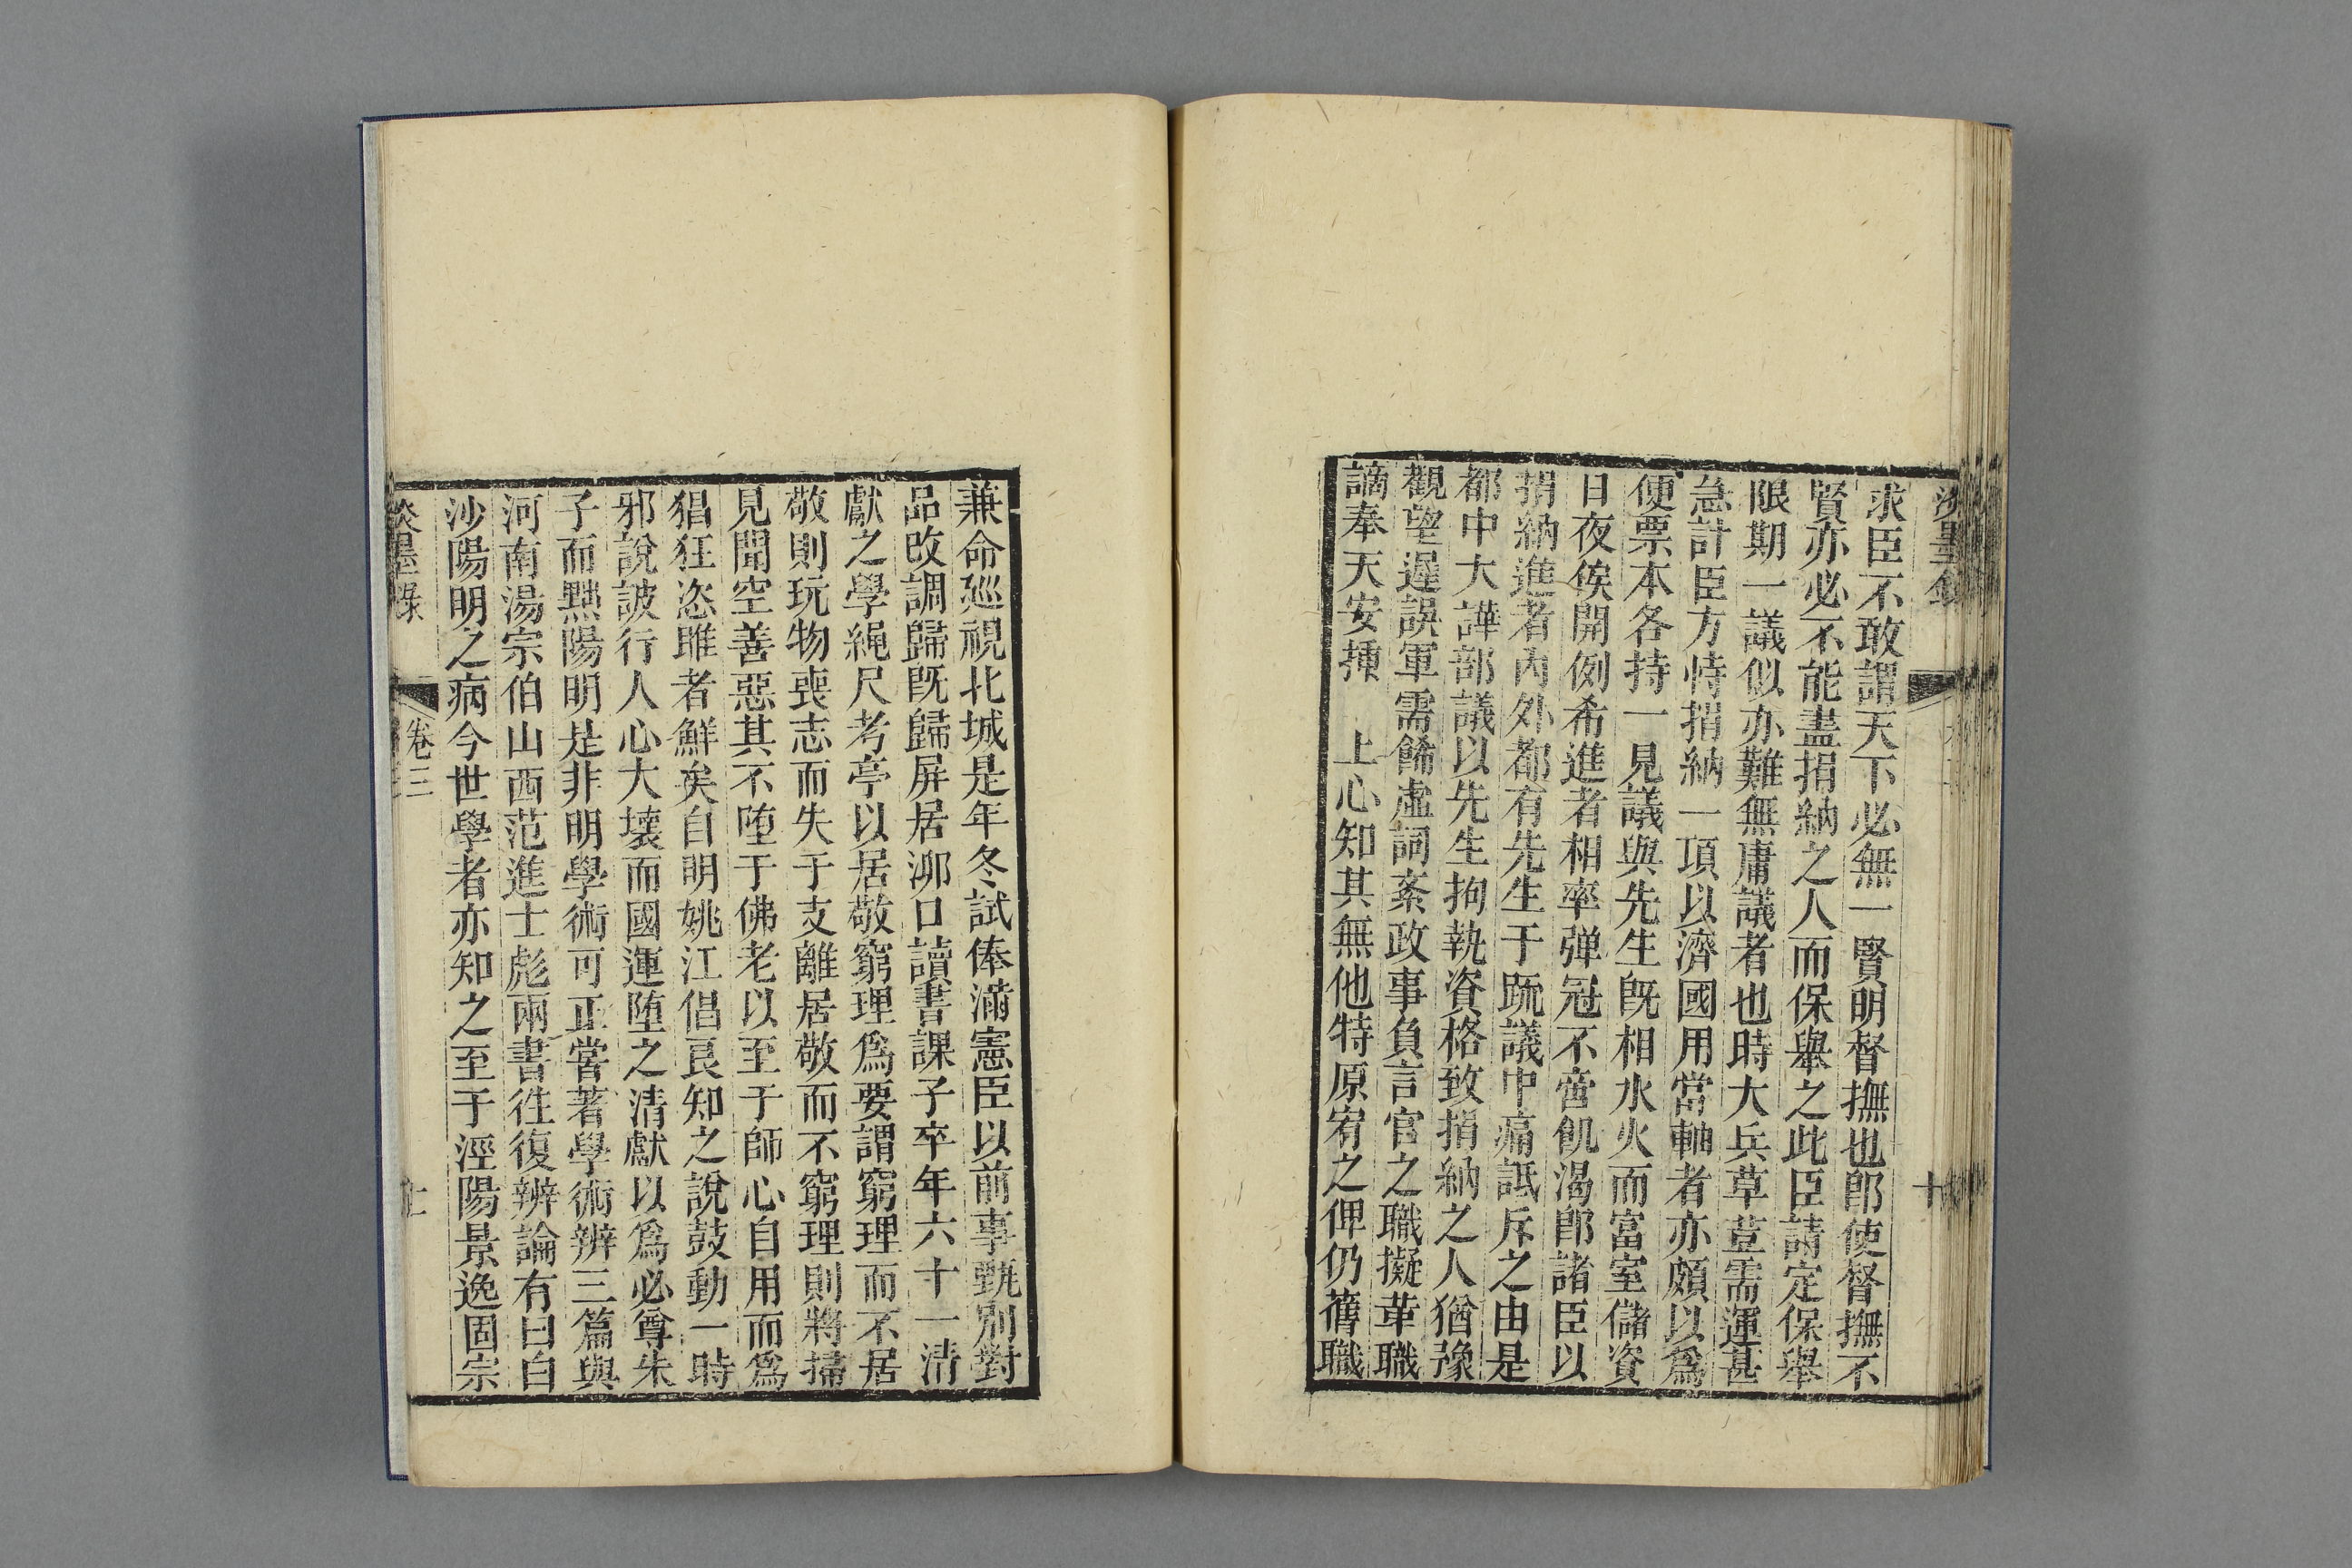 淡墨錄
十
求臣不敢謂天下必無一賢明督撫也卽使督撫不
賢亦必不能盡捐納之人而保舉之此臣請定保舉
限期一議似亦難無庸議者也時大兵草荳需運甚
急計臣方恃捐納一項以濟國用當軸者亦頗以爲
便票本各持一見議與先生旣相水火而富室儲資
日夜俟開例希進者相率弹冠不啻飢渴卽諸臣以
捐納進者內外都有先生于䟽議中痛詆斥之由是
都中大譁部議以先生拘執資格致捐納之人猶豫
觀望遲誤軍需餙虛詞紊政事負言官之職擬革職
謫奉天安揷 上心知其無他特原宥之俾仍舊職
兼命廵視北城是年冬試俸滿憲臣以前事甄別對
品改調歸旣歸屏居泖口讀書課子卒年六十一清
獻之學繩尺考亭以居敬窮理爲要謂窮理而不居
敬則玩物喪志而失于支離居敬而不窮理則將掃
見聞空善惡其不堕于佛老以至于師心自用而爲
猖狂恣雎者鮮矣自明姚江倡良知之說鼓動一時
邪說詖行人心大壞而國運堕之清獻以爲必尊朱
子而黜陽明是非明學術可正嘗著學術辨三篇與
河南湯宗伯山西范進士彪兩書徃復辨論有曰白
沙陽明之病今世學者亦知之至于涇陽景逸固宗
淡墨錄
卷三